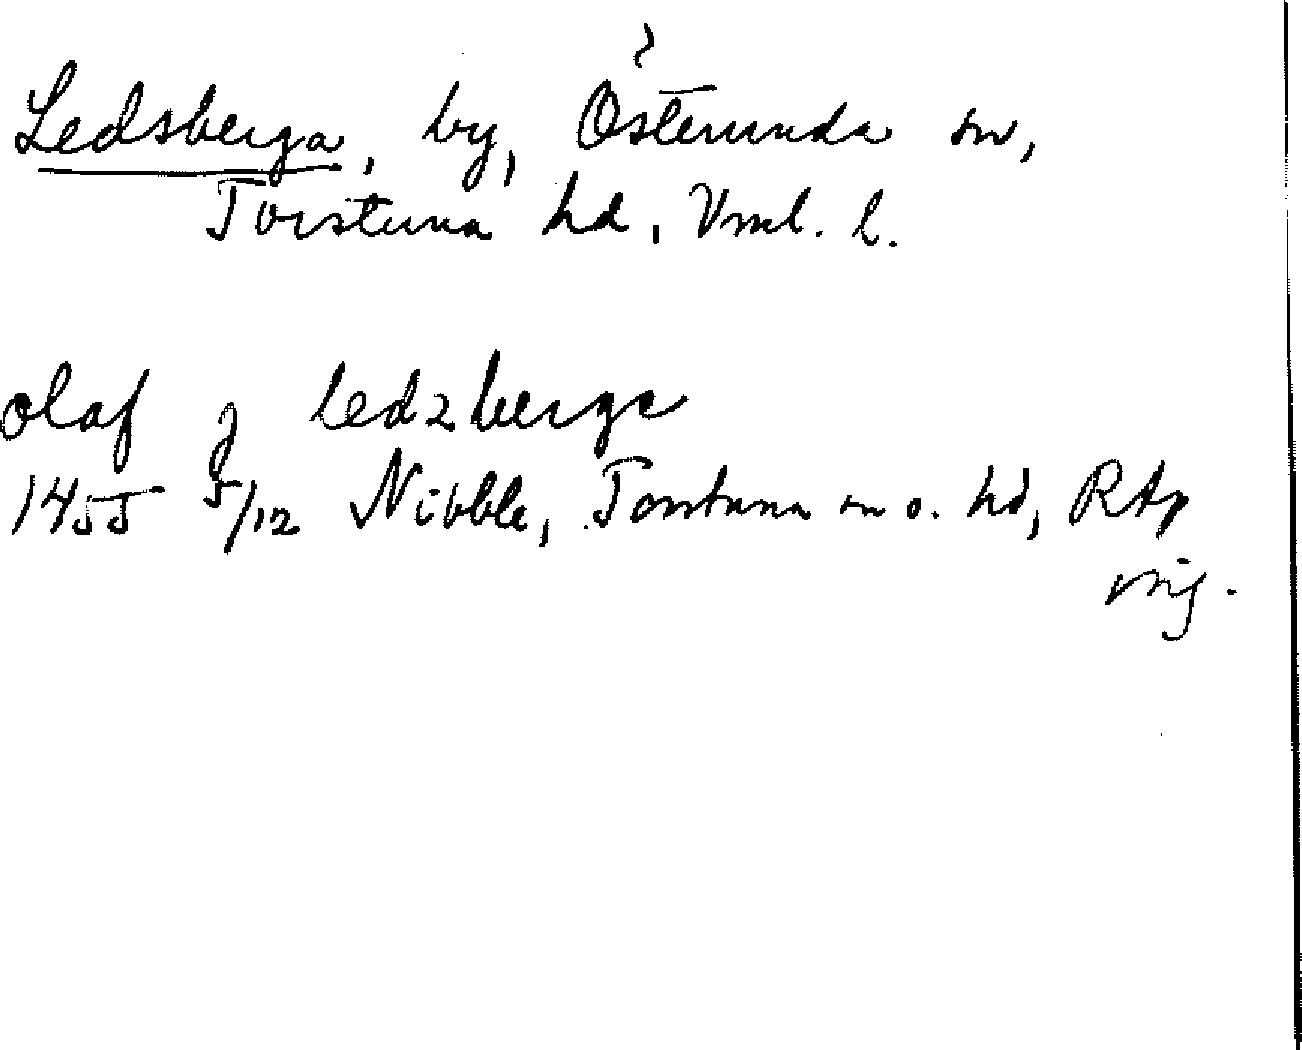 Ledsberga, by, Österunda sn,
Torstuna hd, Vml. l.
olaf j ledzberge
1455 5/12 Nibble, Torstuna sn o. hd, RAp
orig.